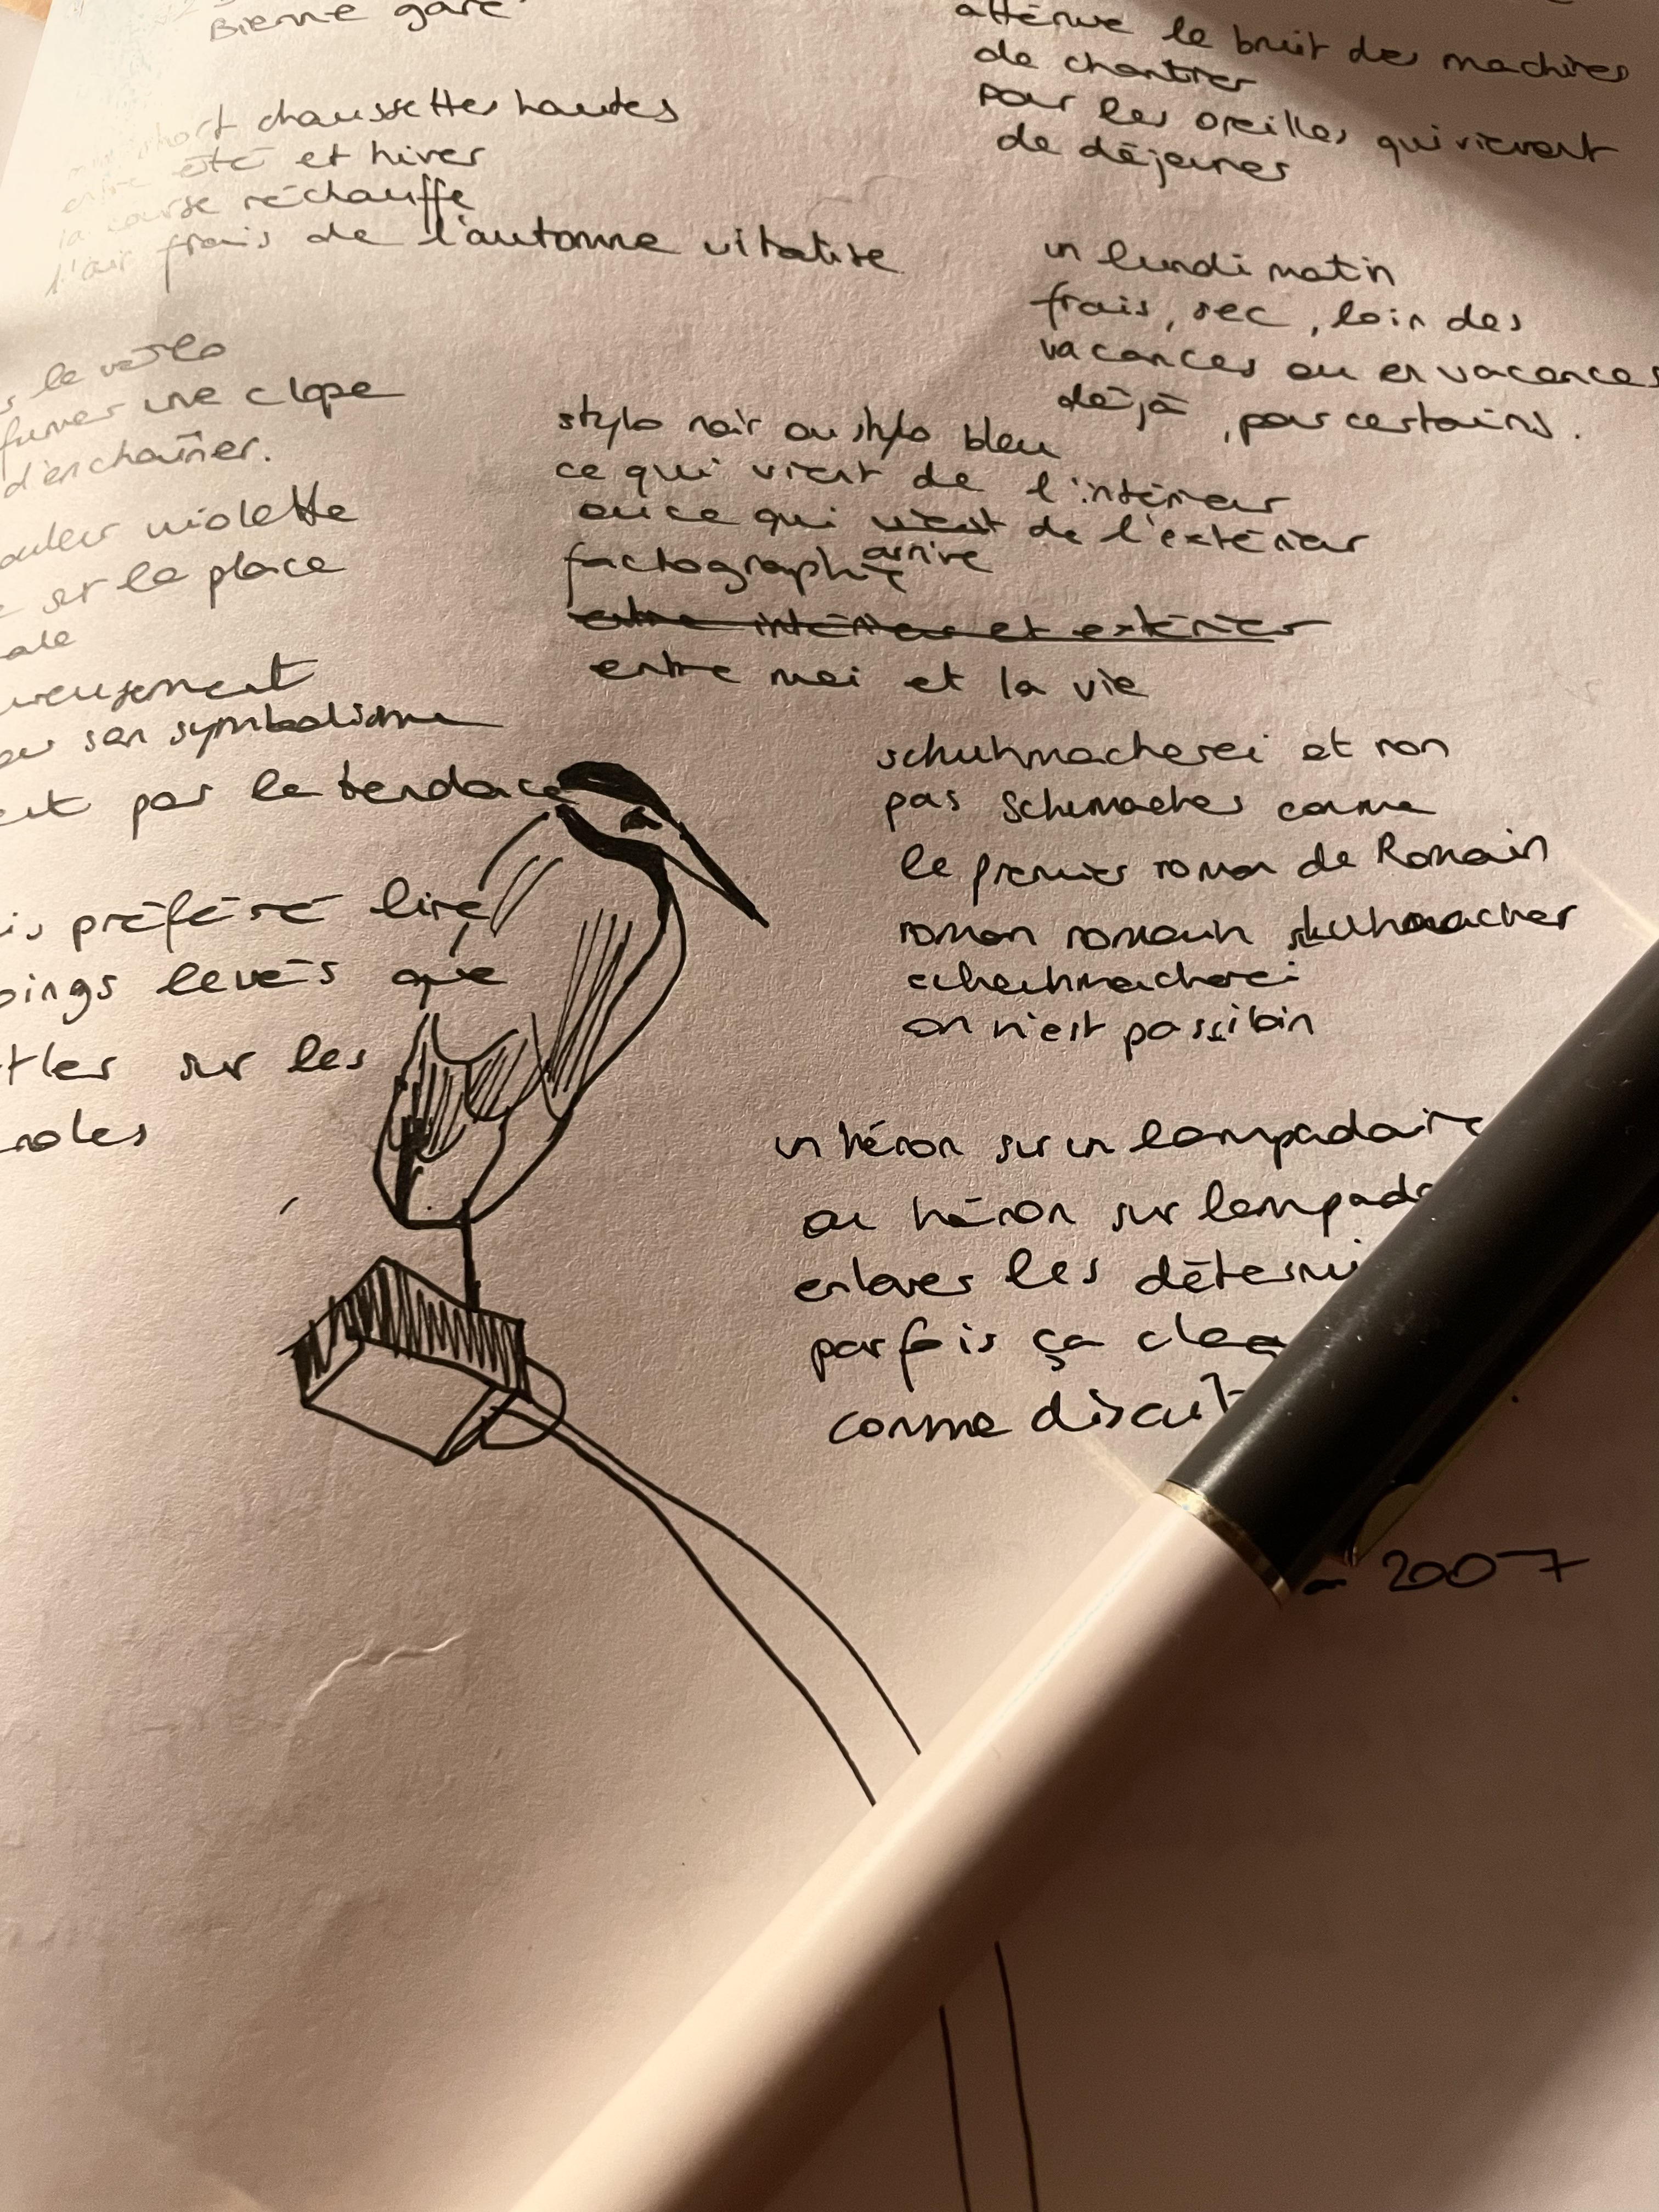 Bienne gare
short chaussettes hautes
entre été et hiver
la course réchauffe
l'air frais de l'automne vitalise
le vélo
fumer une clope
d'enchaîner.
couleur violette
sur la place
ale
ureusement
son symbolisme
par la tendance
is préféré lire
oings levés que
tler sur les
roles
atténue le bruit des machines
de chantier
pour les oreilles qui viennent
de déjeuner
un lundi matin
frais, sec, loin des
vacances ou en vacances
déjà, pour certains.
stylo noir ou stylo bleu
ce qui vient de l'intérieur
ou ce qui vient de l'extérieur
arrive
factographie
entre intérieur et extérieur
entre moi et la vie
schuhmacherei et non
pas Schumacher comme
le premier roman de Romain
roman romain schuhmacher
schuhmacherei
on n'est pas si bin
un héron sur un lampadaire
ou héron sur lampada
enlever les détermi
parfois ça
comme discut
2007